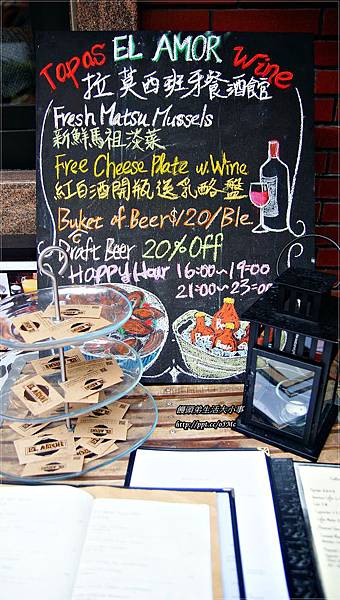 Tapas EL AMOR Wine
拉莫西班牙餐酒館
Fresh Matsu Mussels
新鮮馬祖淡菜
Free Cheese Plate w. Wine
紅白酒開瓶送乳酪盤
Buket of Beer $120/Ble
Draft Beer 20% Off
Happy Hour 16:00~19:00
21:00~23:00
饅頭弟生活大小事
EL AMOR